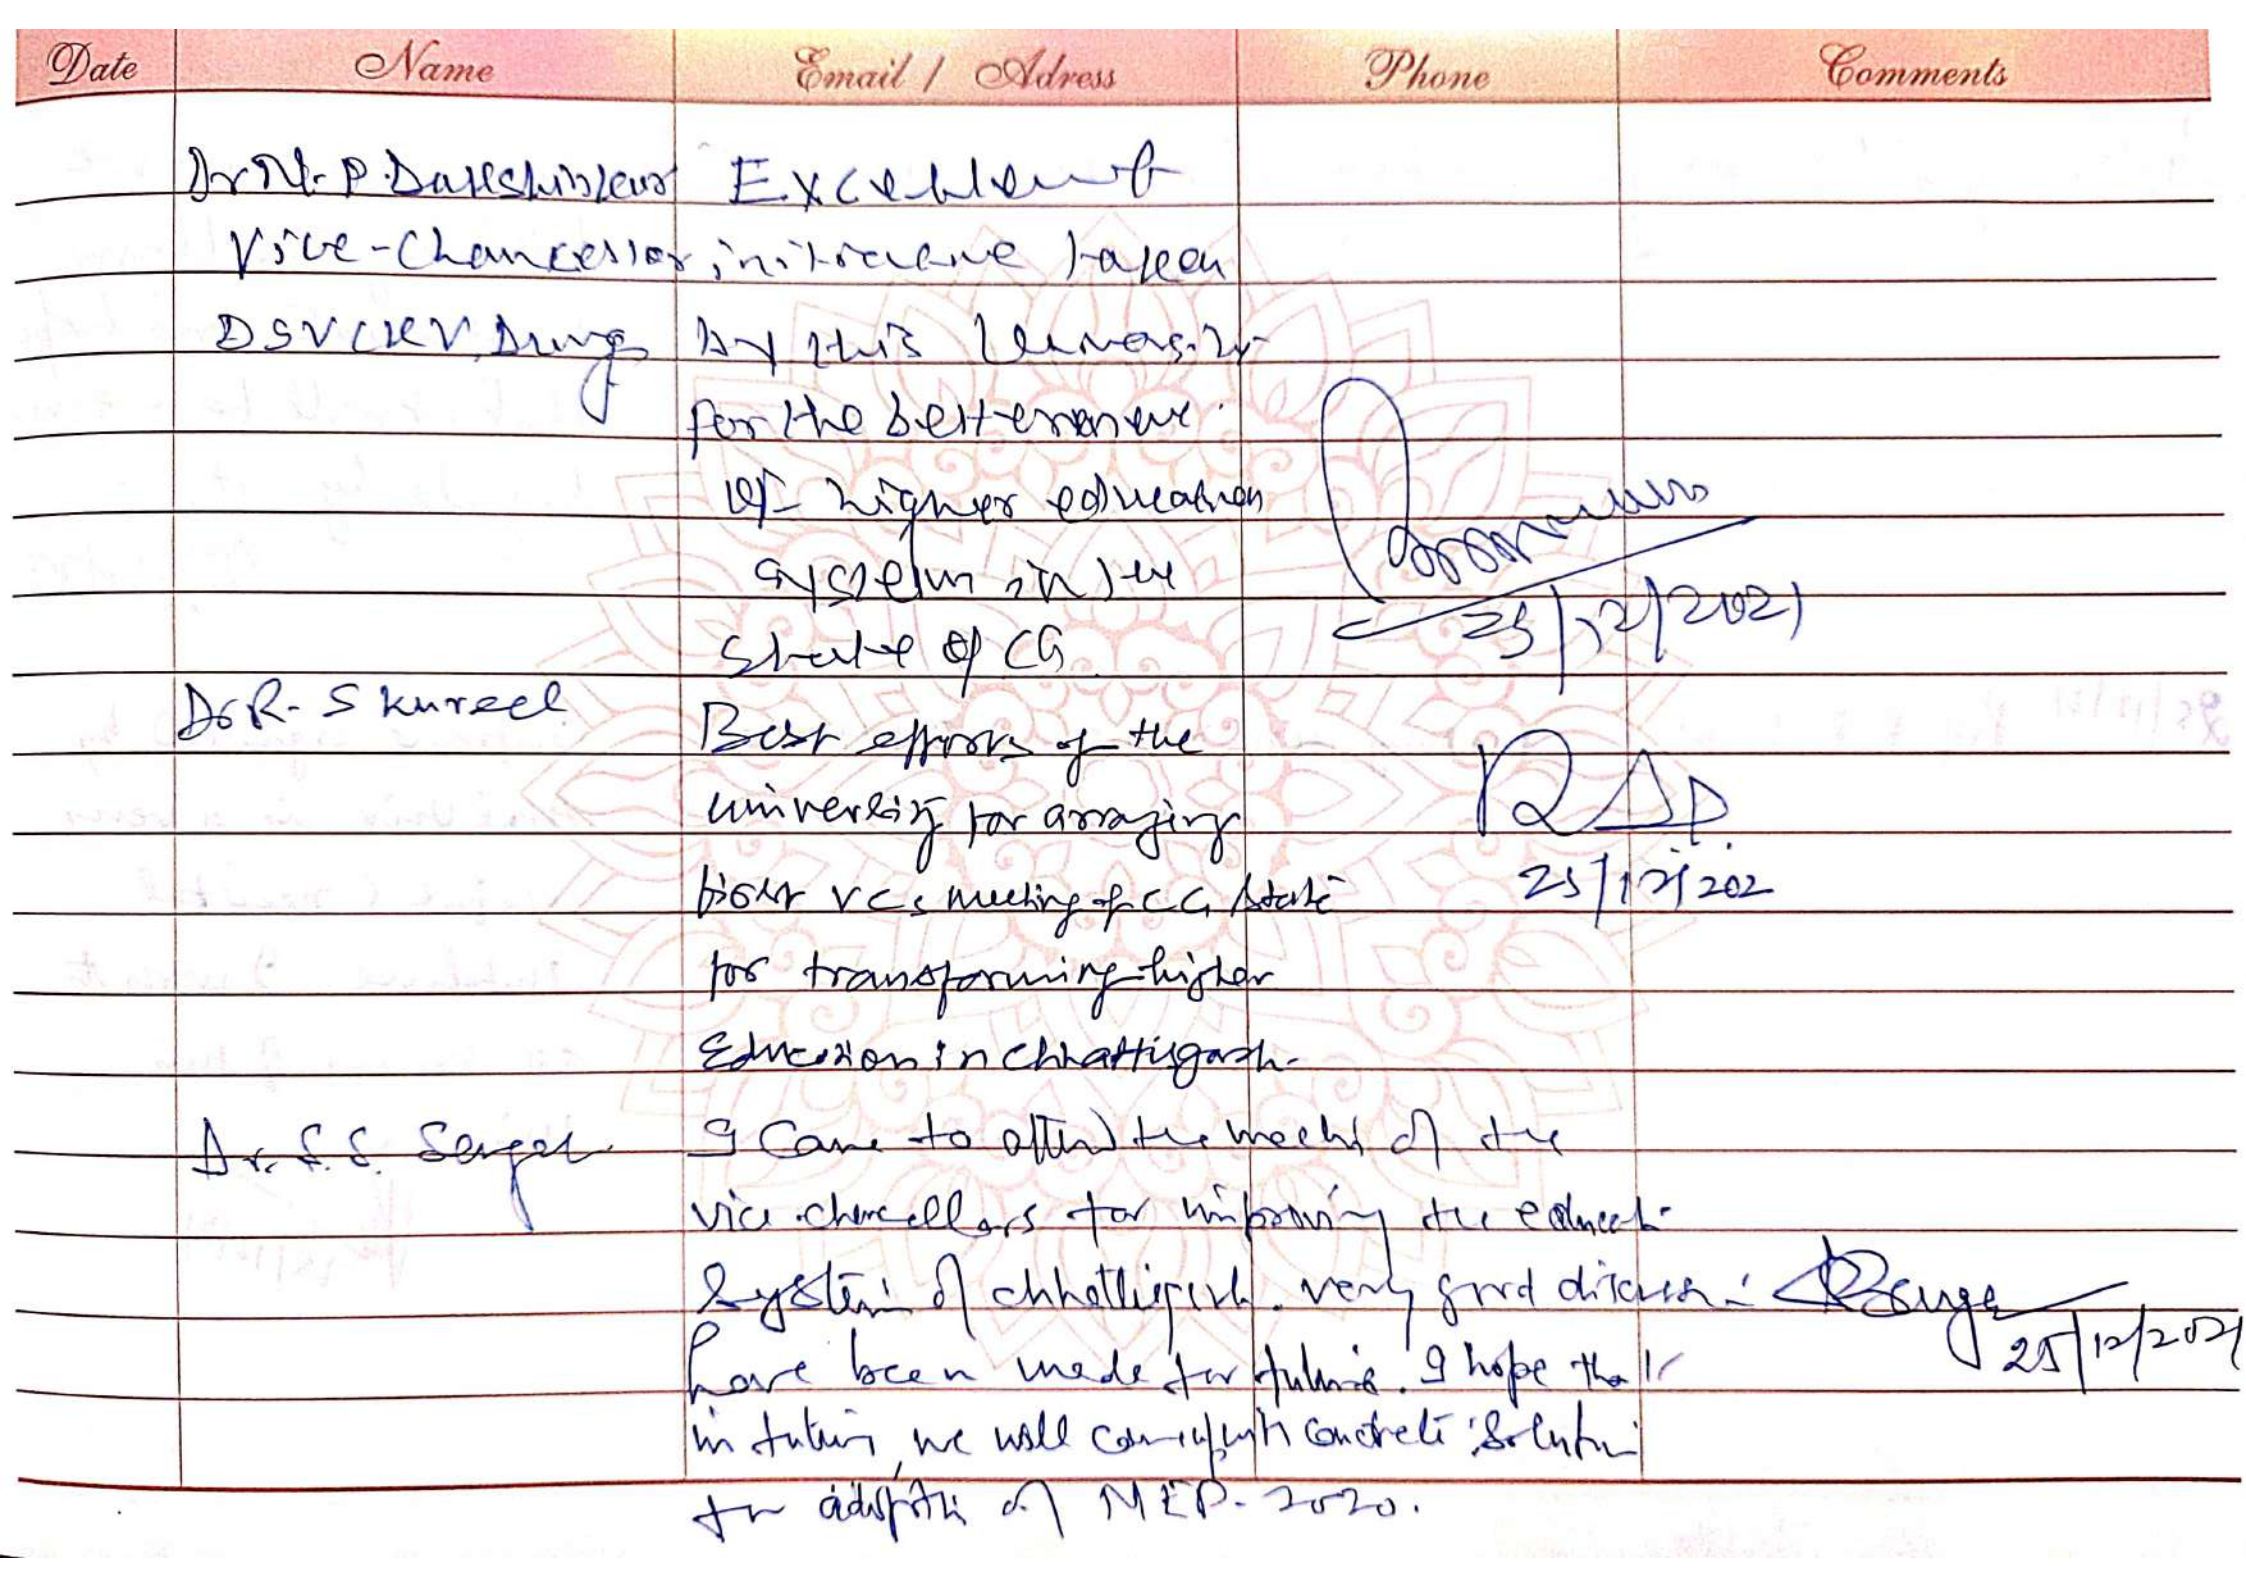 Date Name Email / Adress Phone Comments
Dr N. P. Dakshinkar Excellent
Vice-Chancellor initiative taken
DSVCKV, Durg by this University
for the betterment
of higher education
system in the
state of CG
25/12/2021
Dr R. S Kureel
Best efforts of the
university for arranging
first VCs meeting of CG State
25/12/202
for transforming higher
Education in Chhattisgarh.
Dr. S. S. Sengar I came to attend the meeting of the
vice-chancellors for improving the
system of Chhattisgarh. very good
25/12/2021
have been made for future. I hope that
in future, we will come up with concrete solution
for adoption of NEP-2020.